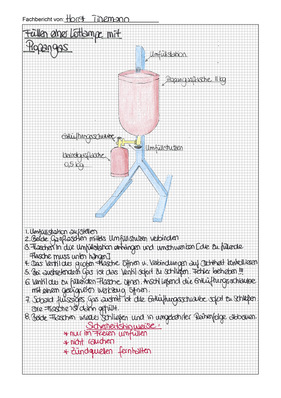 Fachbericht von: Horst
Füllen einer Lötlampe mit
Propangas
Umfüllstation
Propangasflasche 11 kg
Entlüftungsschraube
Umfüllstutzen
Handgasflasche
0,5 kg
1. Umfüllstation aufstellen
2. Beide Gasflaschen mittels Umfüllstutzen verbinden
3. Flaschen in die Umfüllstation einhängen und verschrauben [die zu füllende
Flasche muss unten hängen]
4. Das Ventil der großen Flasche öffnen u. Verbindungen auf Dichtheit kontrollieren
5. Bei austretendem Gas ist das Ventil sofort zu schließen. Fehler beheben!!!
6. Ventil der zu füllenden Flasche öffnen. Anschließend die Entlüftungsschraube
mit einem geeigneten Werkzeug öffnen.
7. Sobald flüssiges Gas austritt ist die Entlüftungsschraube sofort zu schließen
Die Flasche ist dann gefüllt.
8. Beide Flaschen wieder schließen und in umgekehrter Reihenfolge abbauen.
Sicherheitshinweise:
* nur im Freien umfüllen
* nicht rauchen
* Zündquellen fernhalten